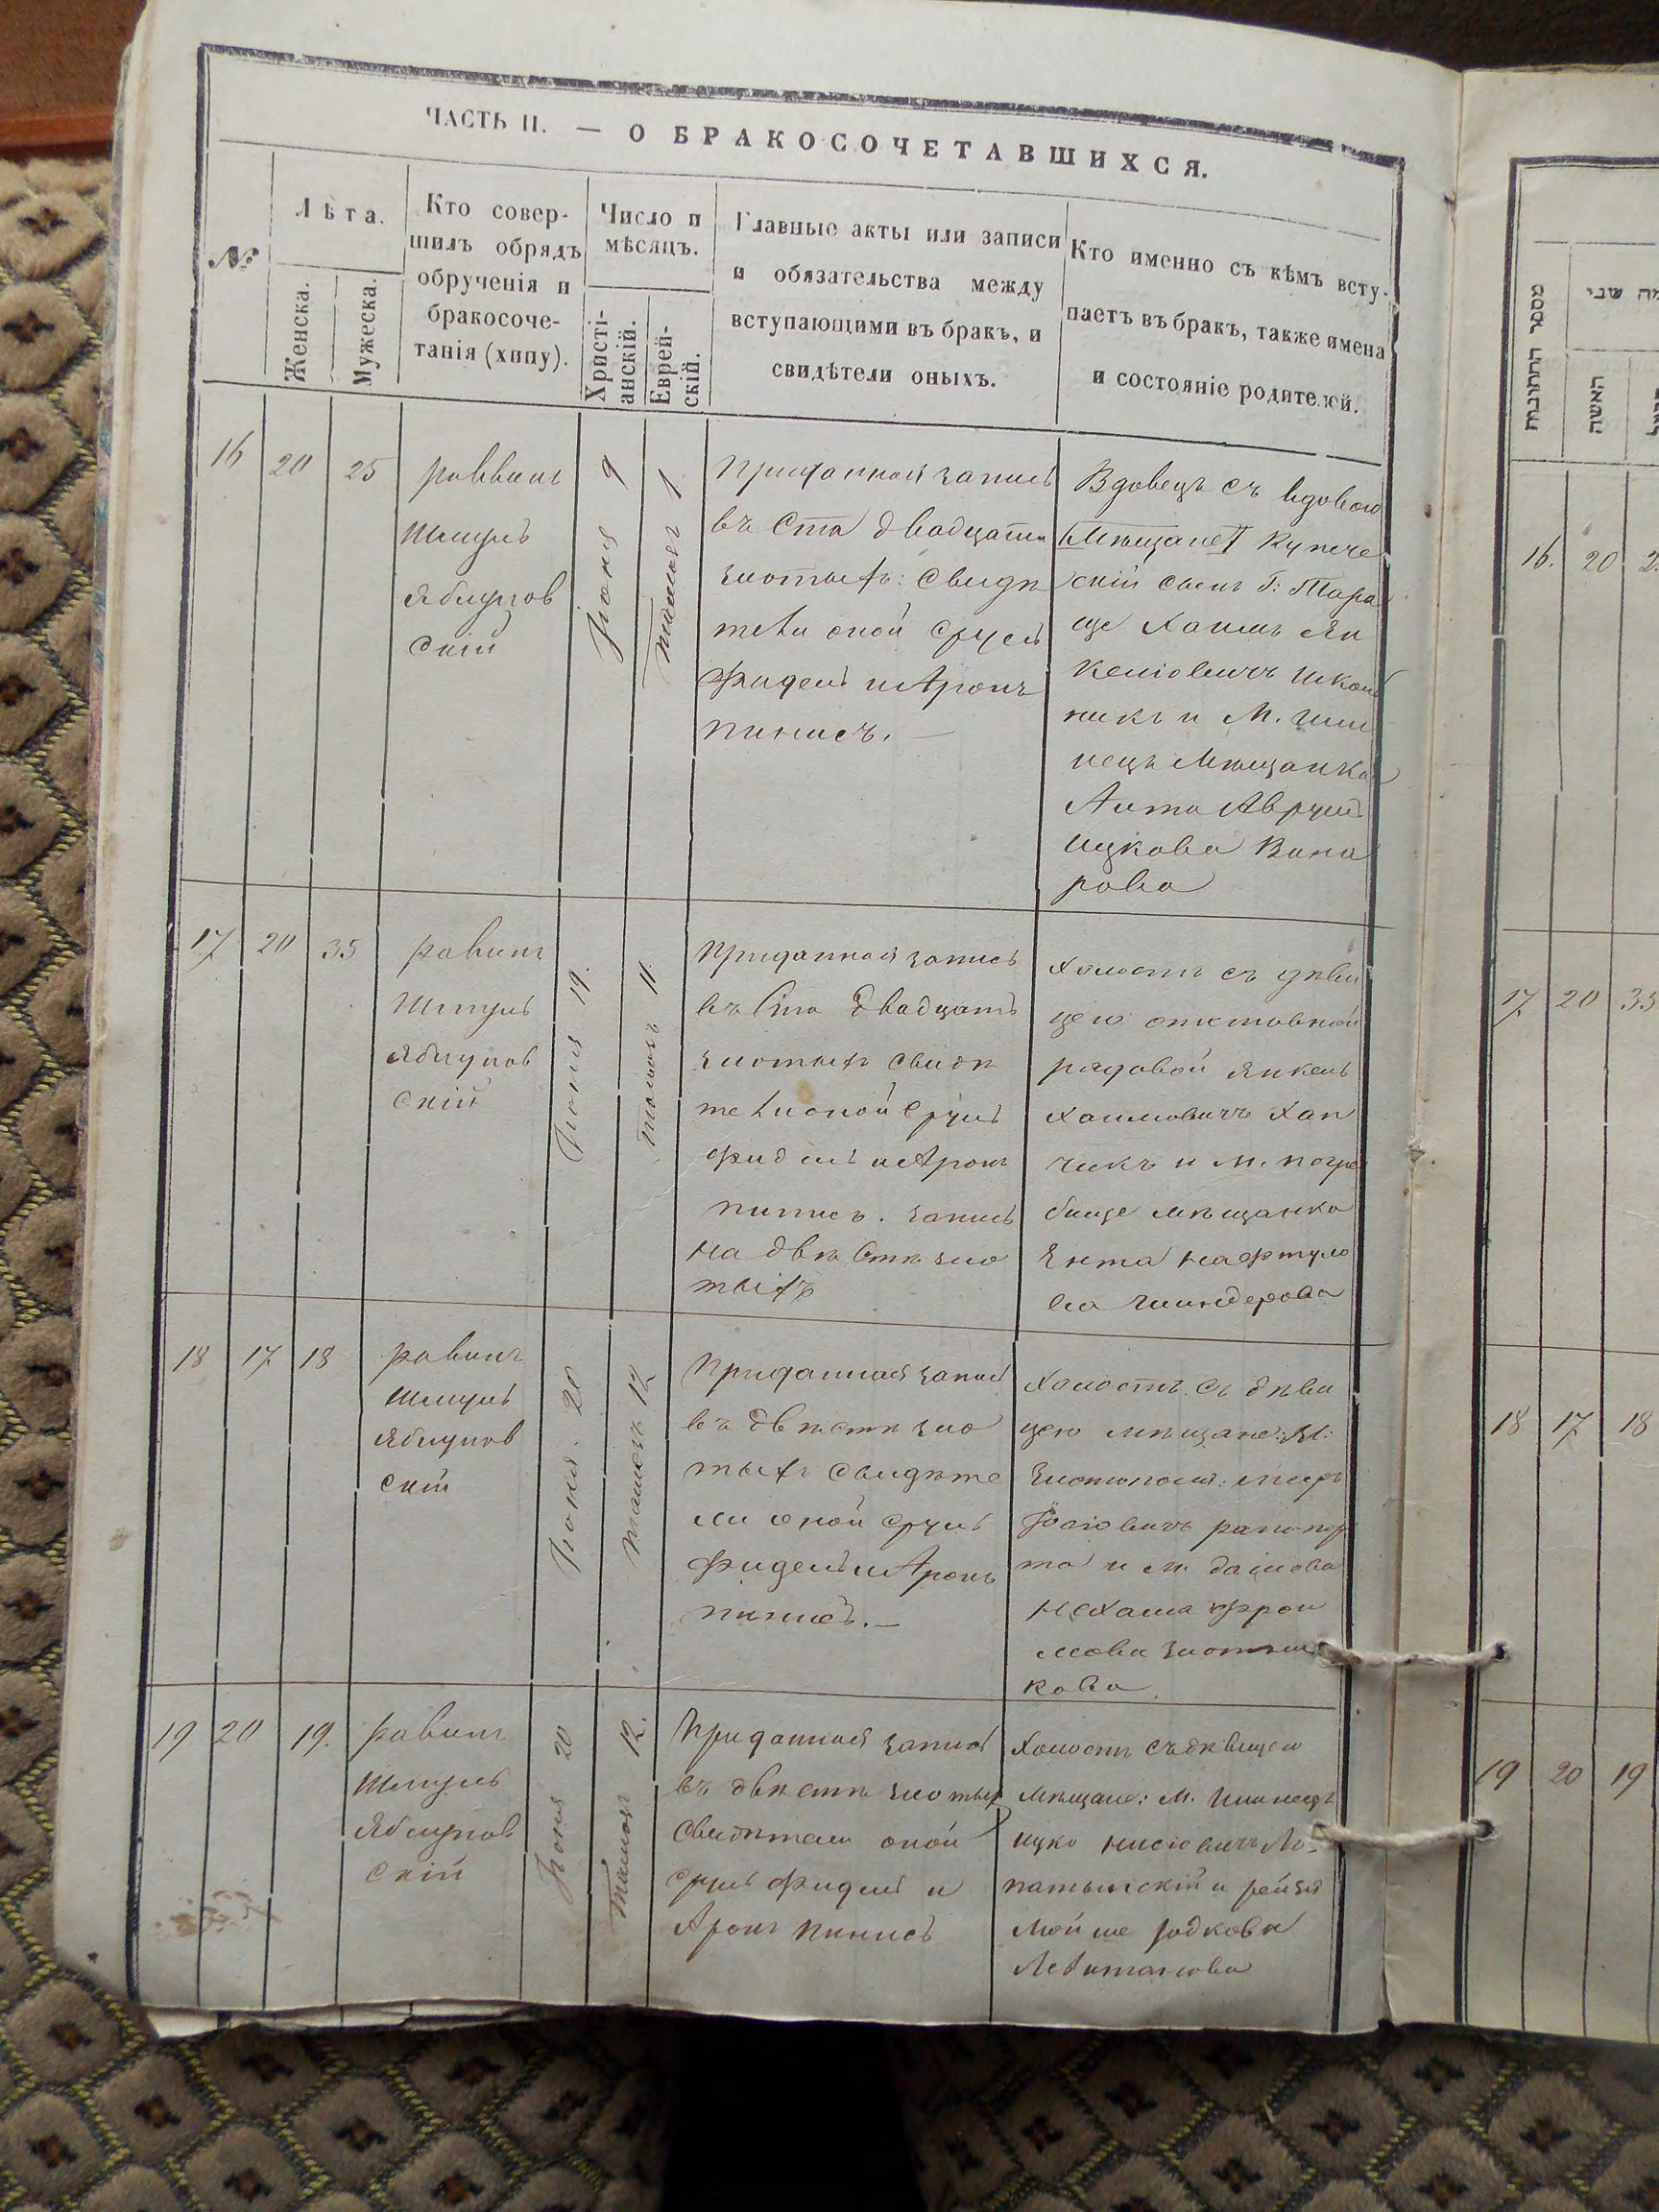 ЧАСТЬ II. — О БРАКОСОЧЕТАВШИХСЯ.
№
Лѣта.
Женска.
Мужеска.
Кто совер-
шилъ обрядъ
обрученія и
бракосоче-
танія (хипу).
Число и
мѣсяцъ.
Христі-
анскій.
Еврей-
скій.
Главные акты или записи
и обязательства между
вступающими въ бракъ, и
свидѣтели оныхъ.
Кто именно съ кѣмъ всту-
паетъ въ бракъ, также имена
и состояніе родителей.
16
20
25
раввинъ
Шмуль
Яблунов
скій
Іюня 9
Тамазъ 1
Приданная запись
въ Ста двадцати
злотыхъ: свидѣ
тели оной Сруль
Фидель и Аронъ
Пинисъ. —
Вдовецъ съ вдовою
Мѣщане Купече
скій сынъ Г: Тара
ще Хаимъ Ян
келіовичъ Школь
никъ и М.
нецъ Мѣщанка
Аврум
Ицкова Вина
рова
17
20
35
равинъ
Шмуль
Яблунов
скій
Іюня 19.
Тамазъ 11.
Приданная запись
въ Ста двадцать
злотыхъ свидѣ
тели оной Сруль
Фидель и Аронъ
Пинисъ. запись
на двѣ Стѣ зло
тыхъ
Холостъ съ дѣви
цею отставной
рядовой Янкель
Хаимовичъ Хап
чикъ и м. Погре
бище мѣщанка
Ента Нафтуло
ва
18
17
18
равинъ
Шмуль
Яблунов
скій
Іюня. 20
Тамазъ 12
Приданная запись
въ двѣстѣ зло
тыхъ свидѣте
ли оной Сруль
Фидель и Аронъ
Пинисъ. —
Холостъ съ дѣви
цею мѣщане: М:
Златополя: Меръ
Іосіовичъ Рапопор
та и м. Дашова
Нехама Фрои
мова Злотни
кова
19
20
19.
равинъ
Шмуль
Яблунов
скій
Іюня 20
Тамазъ 12.
Приданная запись
въ двѣстѣ злотыхъ
свидѣтели оной
Сруль Фидель и
Аронъ Пинисъ
Холостъ съ дѣвицею
Мѣщане: М.
Ицко Нисіовичъ Ло-
патынскій и Рейзя
Мойше Іодкова
Левитанова
מספר החתונות
האשה
16.
20
17.
20
35
18
17
18
19
20
19